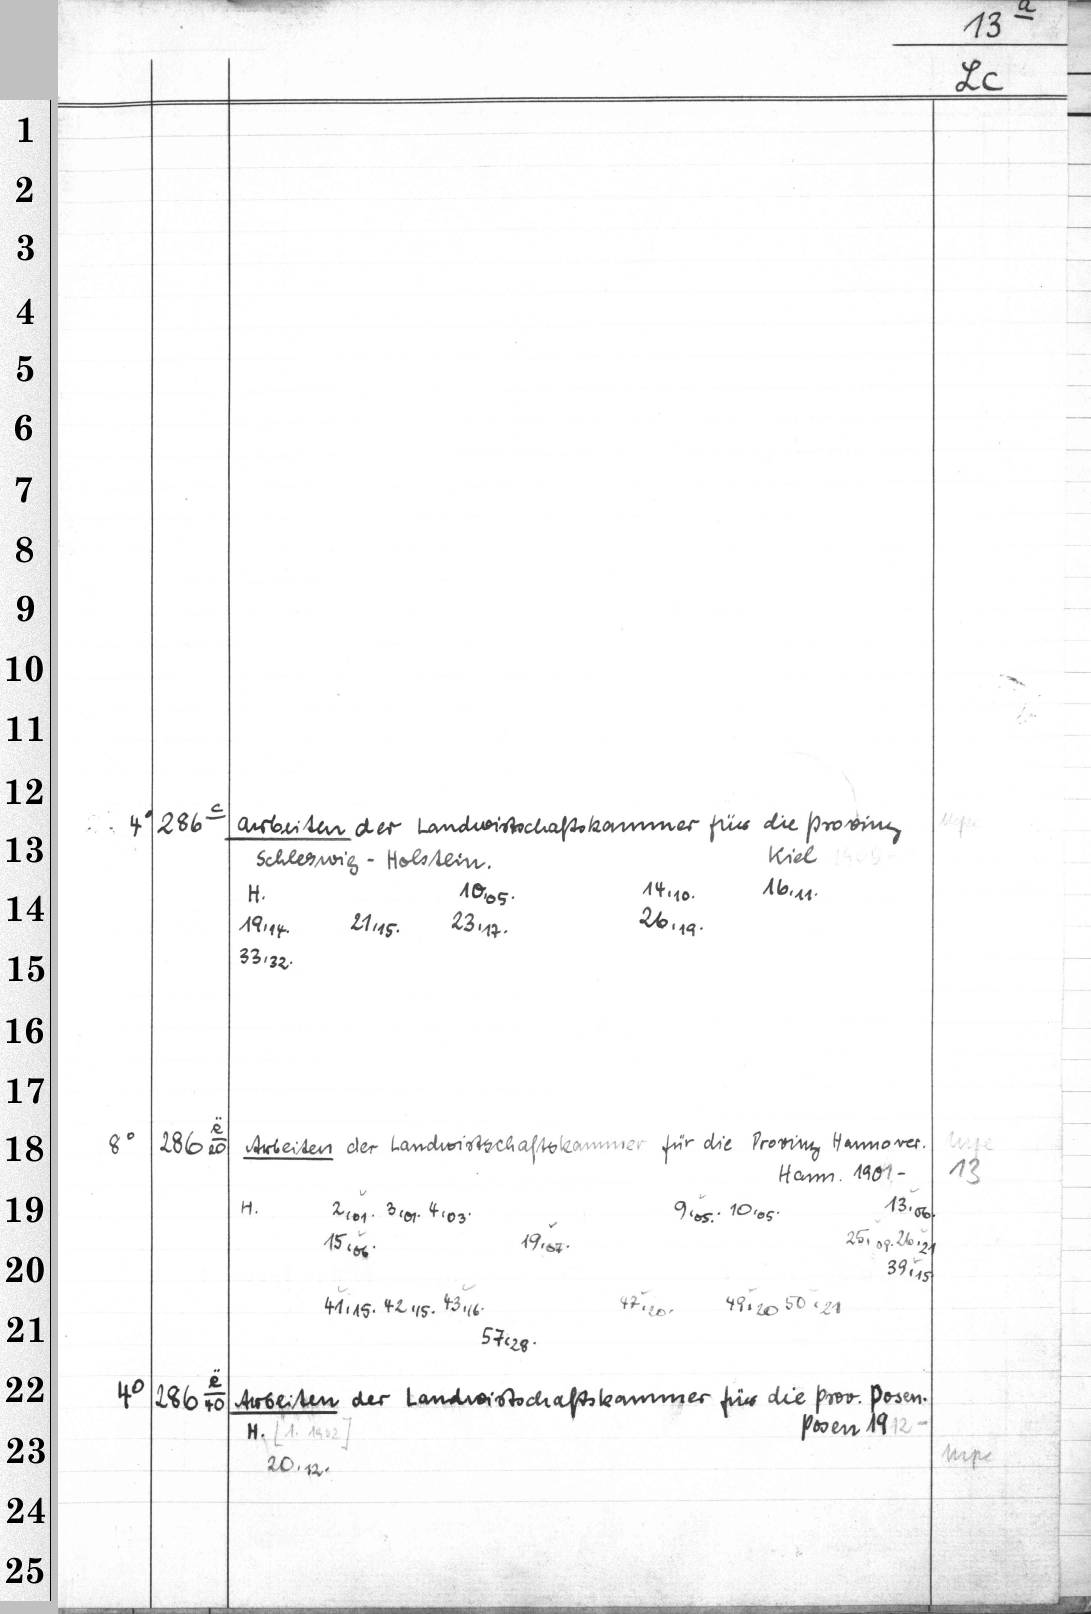 13 a
Lc
1
2
3
4
5
6
7
8
9
10
11
12
4° 286 c Arbeiten der Landwirtschaftskammer für die Provinz
13
Schleswig-Holstein. Kiel
14
H. 10,05. 14,10. 16,11.
19,14. 21,15. 23,17. 26,19.
15
33,32.
16
17
18
8° 286 ë/20 Arbeiten der Landwirtschaftskammer für die Provinz Hannover.
Hann. 1901- 13
19
H. 2,01. 3,01. 4,03. 9,05. 10,05. 13,06.
15,06. 19,07. 25,09. 26,21
20
39,15
21
41,15. 42,15. 43,16. 47,20. 49,20 50,21
57,28.
22
4° 286 ë/40 Arbeiten der Landwirtschaftskammer für die Prov. Posen.
H. [1. 1902] Posen 1912-
23
20,12.
24
25